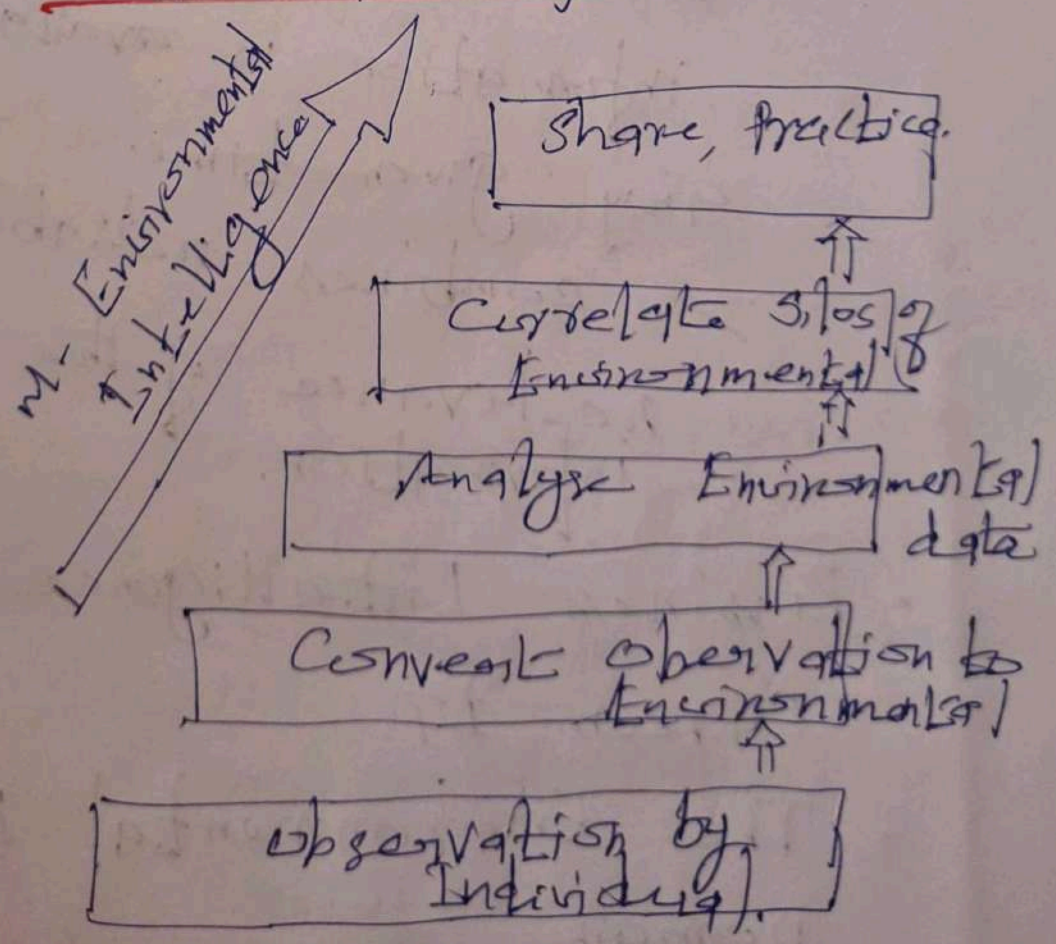 M- Environmental
Intelligence
Share, Practice.
Correlate Silos of
Environmental
Analyse Environmental
data
Convert obervation to
Environmental
observation by
Individual.